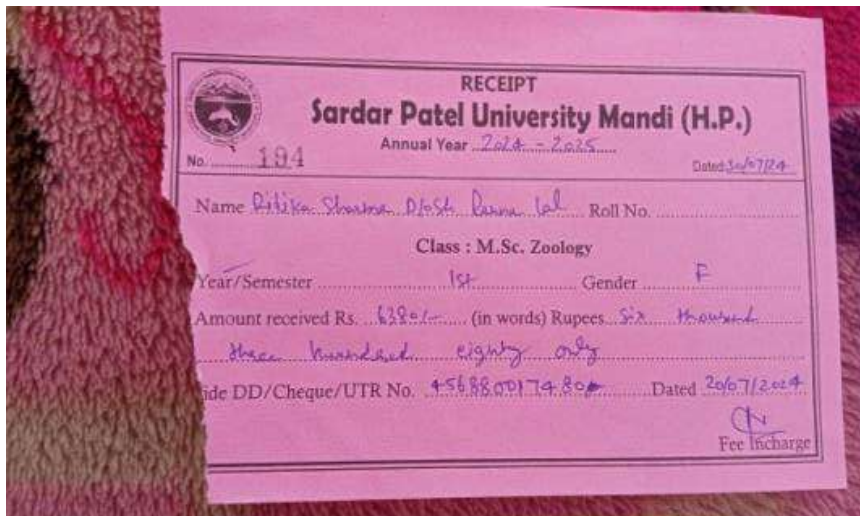 RECEIPT
Sardar Patel University Mandi (H.P.)
Annual Year 2024 - 2025
No. 194
Dated 30/07/24
Name Ritika Sharma D/o Sh. Lal Roll No.
Class : M.Sc. Zoology
Year/Semester 1st Gender F
Amount received Rs. 6380/- (in words) Rupees Six thousand
three hundred eighty only
ide DD/Cheque/UTR No. Dated 20/07/2024
Fee Incharge